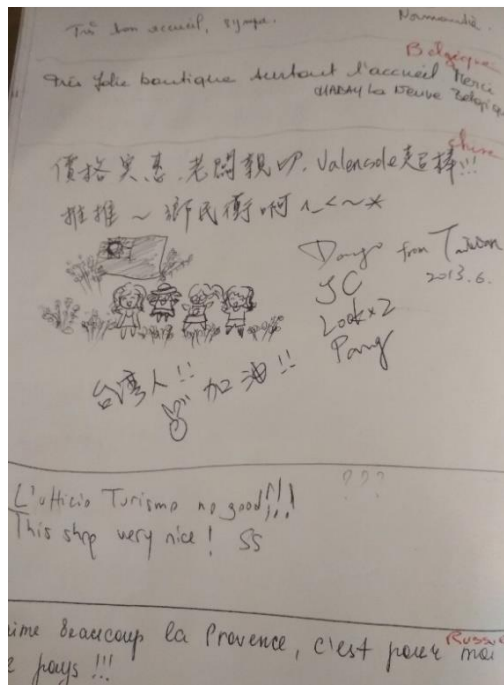 Très bon accueil, sympa.
Normandie.
Belgique
Très jolie boutique surtout l'accueil Merci
HABAY La Neuve Belgique
Chine
價格實惠、老闆親切、Valensole超棒!!!
推推～鄉民衝啊ㄟ<～*
Dango from Taiwan
2013.6.
JC
Look x2
Pang
台灣人!!
加油!!
L'ufficio Turismo no good!!!
???
This shop very nice! SS
aime beaucoup la Provence, c'est pour moi
Russie
pays !!!